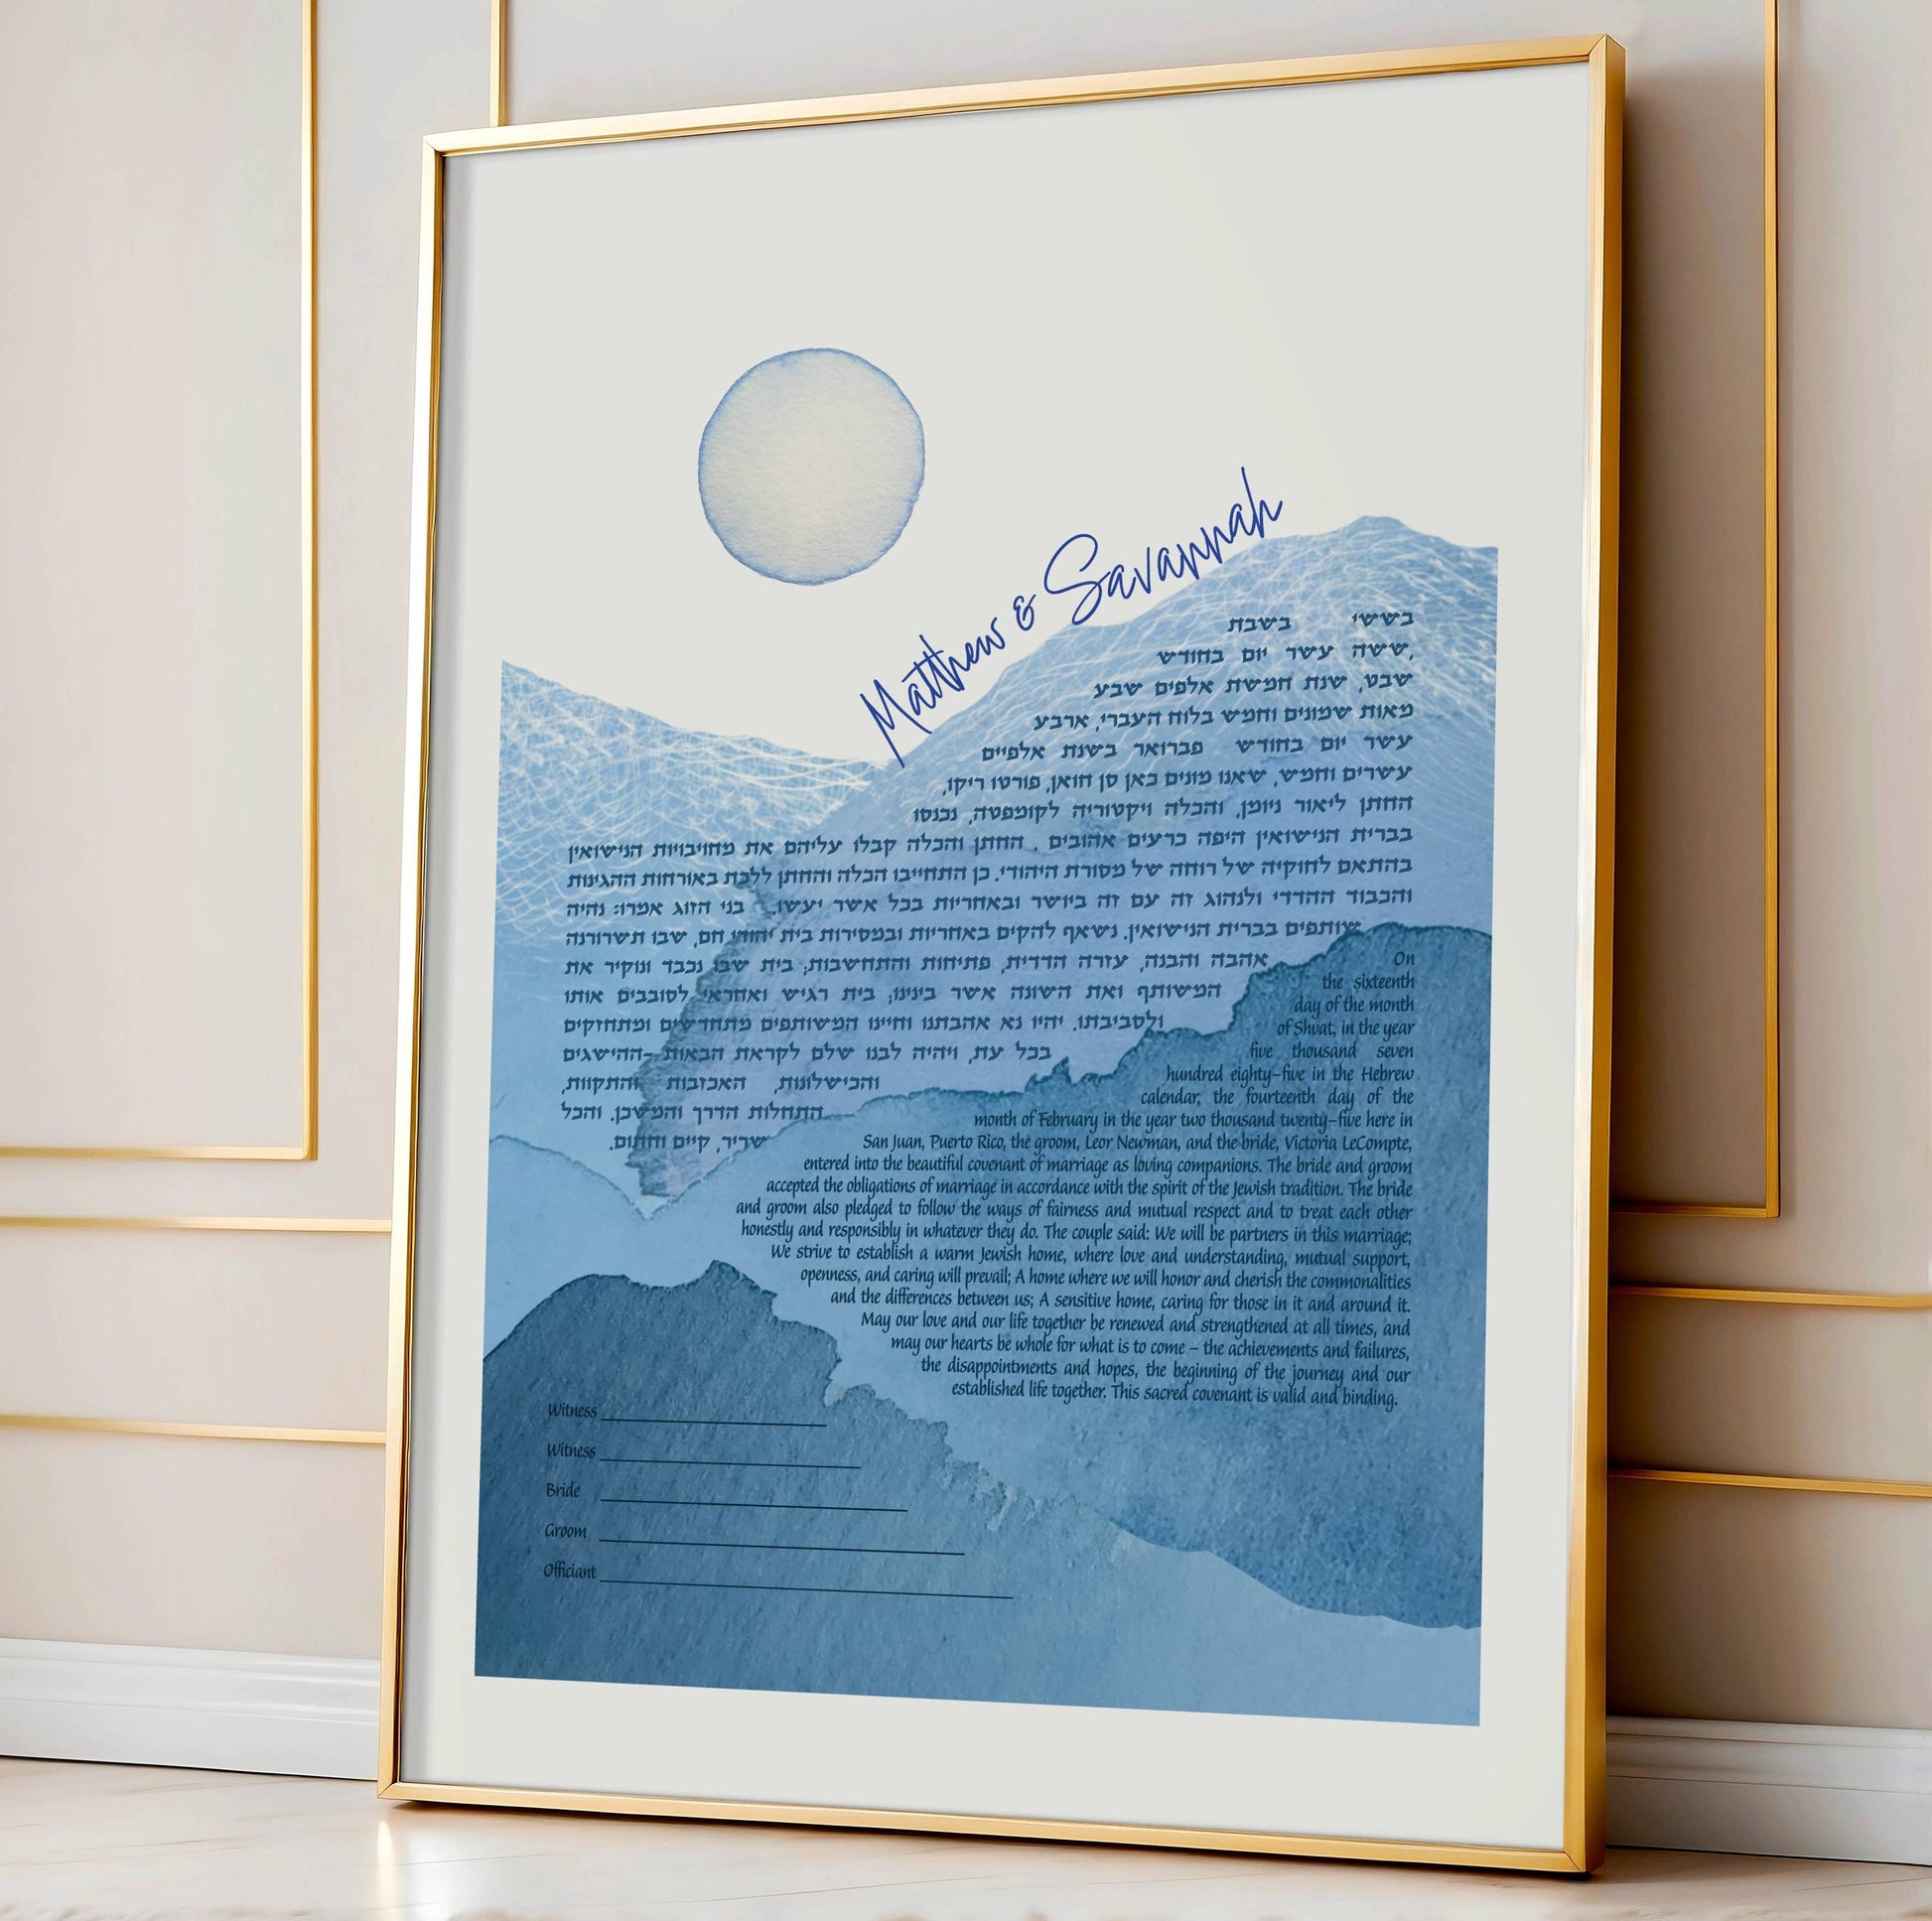 Matthew & Savannah
בששי בשבת
ששה עשר יום בחודש,
שבט, שנת חמשת אלפים שבע
מאות שמונים וחמש בלוח העברי, ארבע
עשר יום בחודש פברואר בשנת אלפיים
עשרים וחמש, שאנו מונים כאן סן חואן, פורטו ריקו,
החתן ליאור ניומן, והכלה ויקטוריה לקומפטה, נכנסו
בברית הנישואין היפה כרעים אהובים . החתן והכלה קבלו עליהם את מחויבויות הנישואין
בהתאם לחוקיה של רוחה של מסורת היהודי. כן התחייבו הכלה והחתן ללכת באורחות ההגינות
והכבוד ההדדי ולנהוג זה עם זה ביושר ובאחריות בכל אשר יעשו. בני הזוג אמרו: נהיה
שותפים בברית הנישואין. נשאף להקים באחריות ובמסירות בית יהודי חם, שבו תשרורנה
אהבה והבנה, עזרה הדדית, פתיחות והתחשבות; בית שבו נכבד ונוקיר את
המשותף ואת השונה אשר בינינו; בית רגיש ואחראי לסובבים אותו
ולסביבתו. יהיו נא אהבתנו וחיינו המשותפים מתחדשים ומתחזקים
בכל עת, ויהיה לבנו שלם לקראת הבאות -ההישגים
והכישלונות, האכזבות והתקוות,
התחלות הדרך והמשכן. והכל
שריר, קיים וחתום.
On
the sixteenth
day of the month
of Shvat, in the year
five thousand seven
hundred eighty-five in the Hebrew
calendar, the fourteenth day of the
month of February in the year two thousand twenty-five here in
San Juan, Puerto Rico, the groom, Leor Newman, and the bride, Victoria LeCompte,
entered into the beautiful covenant of marriage as loving companions. The bride and groom
accepted the obligations of marriage in accordance with the spirit of the Jewish tradition. The bride
and groom also pledged to follow the ways of fairness and mutual respect and to treat each other
honestly and responsibly in whatever they do. The couple said: We will be partners in this marriage;
We strive to establish a warm Jewish home, where love and understanding, mutual support,
openness, and caring will prevail; A home where we will honor and cherish the commonalities
and the differences between us; A sensitive home, caring for those in it and around it.
May our love and our life together be renewed and strengthened at all times, and
may our hearts be whole for what is to come – the achievements and failures,
the disappointments and hopes, the beginning of the journey and our
established life together. This sacred covenant is valid and binding.
Witness
Witness
Bride
Groom
Officiant